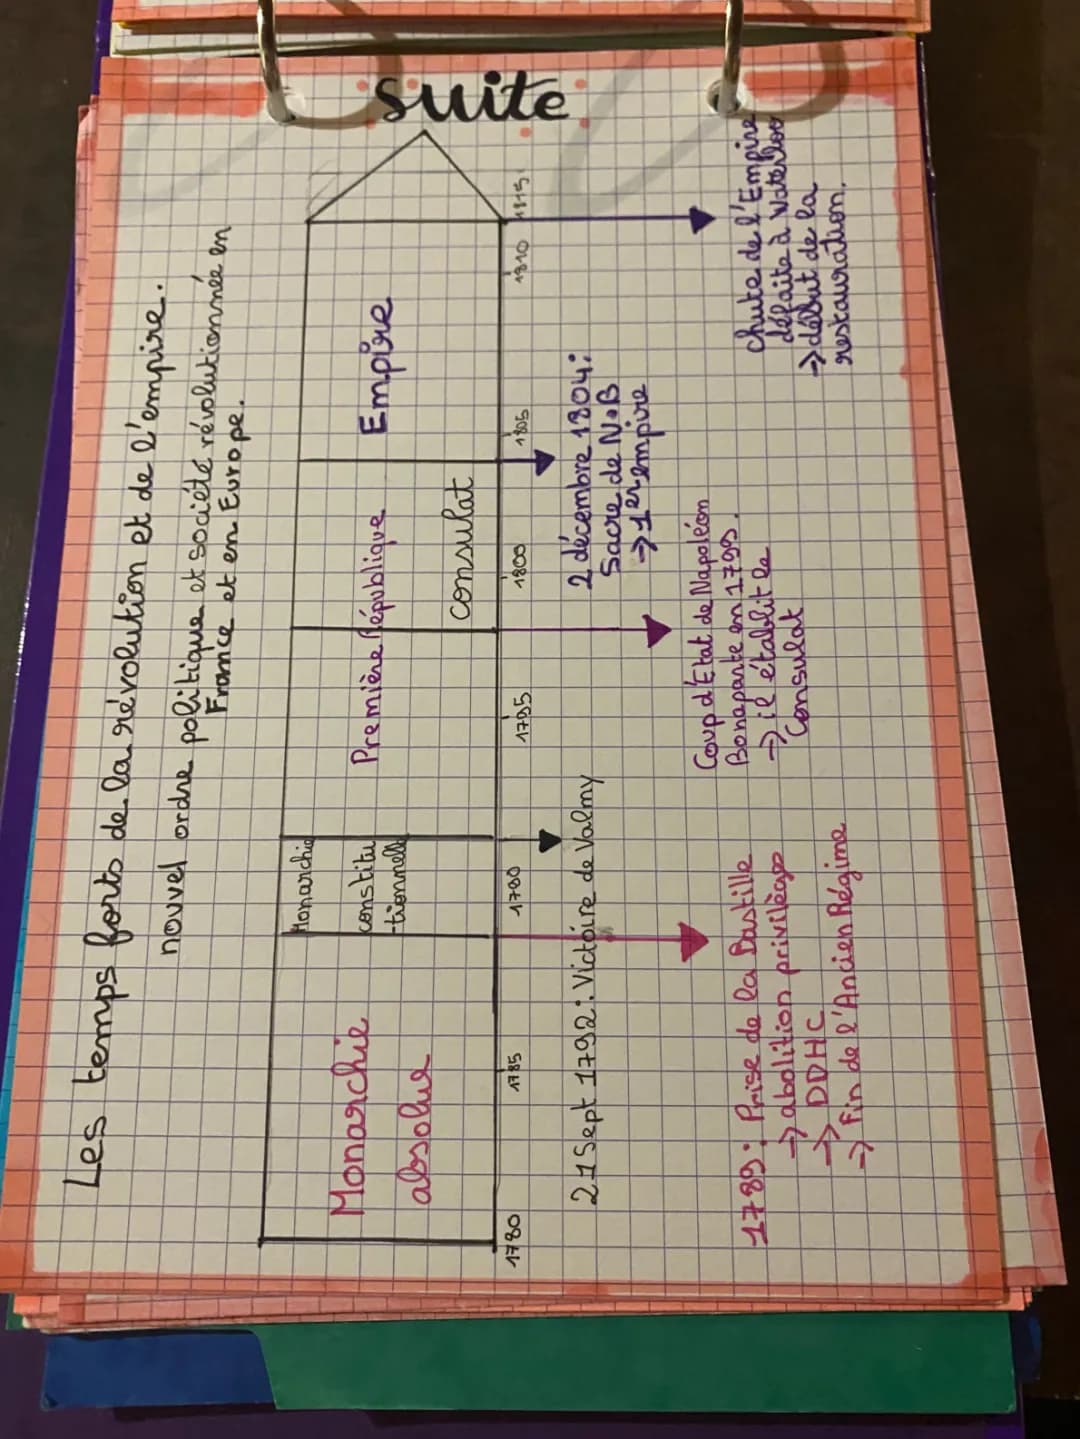 suite
Les temps forts de la révolution et de l'empire.
nouvel ordre politique et société révolutionnée en
France et en Europe.
Monarchie
absolue
Monarchie
constitu
-tionnelle
Première République
consulat
Empire
1780
1785
1790
1795
1800
1805
1810
1815
21 Sept 1792 : Victoire de Valmy
2 décembre 1804 :
Sacre de N.B
→ 1er empire
Coup d'État de Napoléon
Bonaparte en 1799.
→ il établit le
Consulat
1789 : Prise de la Bastille
→ abolition privilèges
→ DDHC
→ Fin de l'Ancien Régime
Chute de l'Empire
défaite à Waterloo
→ début de la
restauration.